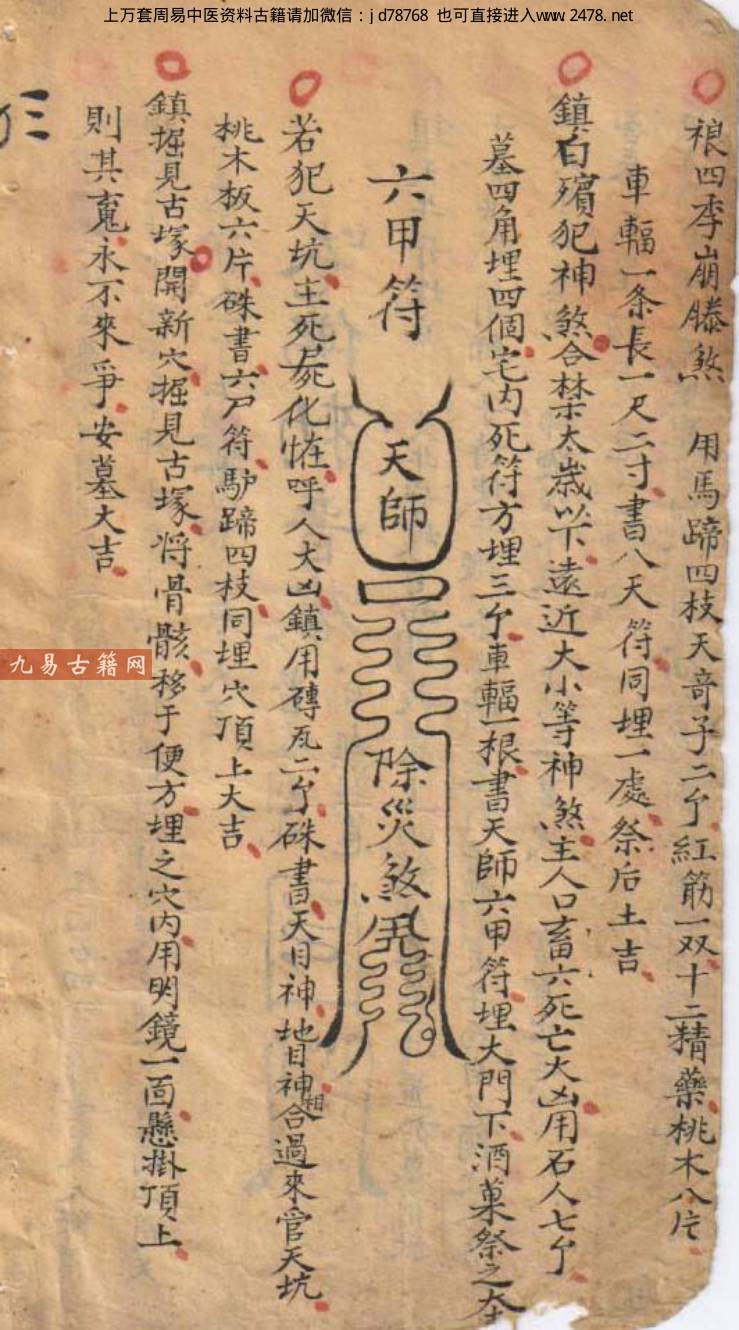 上万套周易中医资料古籍请加微信：jd78768 也可直接进入www.2478.net
四季崩滕煞 用馬蹄四枝天奇子二个紅筋一双十二精藥桃木八片
車輻一条長一尺二寸書八天符同埋一處祭后土吉
鎮白殯犯神煞合禁太歲以下遠近大小等神煞主人口畜六死亡大凶用石人七个
墓四角埋四個宅内死符方埋三个車輻一根書天師六甲符埋大門下酒菓祭之大
六甲符
天師
除災煞
若犯天坑主死屍化怪呼人大凶鎮用磚瓦二个硃書天目神地目神相合過來管天坑
桃木板六片硃書六尸符馿蹄四枝同埋穴頂上大吉
鎮掘見古塚開新穴掘見古塚将骨骸移于便方埋之穴内用明鏡一面懸掛頂上
則其䰟永不來爭安墓大吉
九易古籍网